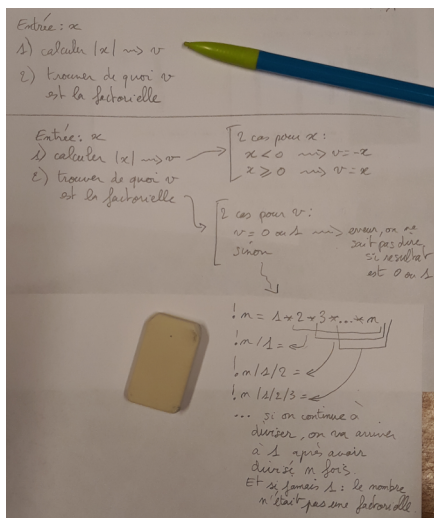 Entrée : x
1) calculer |x| ⇝ v
2) trouver de quoi v
est la factorielle
Entrée : x
1) calculer |x| ⇝ v
2) trouver de quoi v
est la factorielle
2 cas pour x :
x < 0 ⇝ v = -x
x ⩾ 0 ⇝ v = x
2 cas pour v :
v = 0 ou 1 ⇝ erreur, on ne
sait pas dire
si resultat
est 0 ou 1
sinon
!n = 1 * 2 * 3 * ... * n
!n / 1 =
!n / 1 / 2 =
!n / 1 / 2 / 3 =
... si on continue à
diviser, on va arriver
à 1 après avoir
divisé n fois.
Et si jamais 1 : le nombre
n'était pas une factorielle